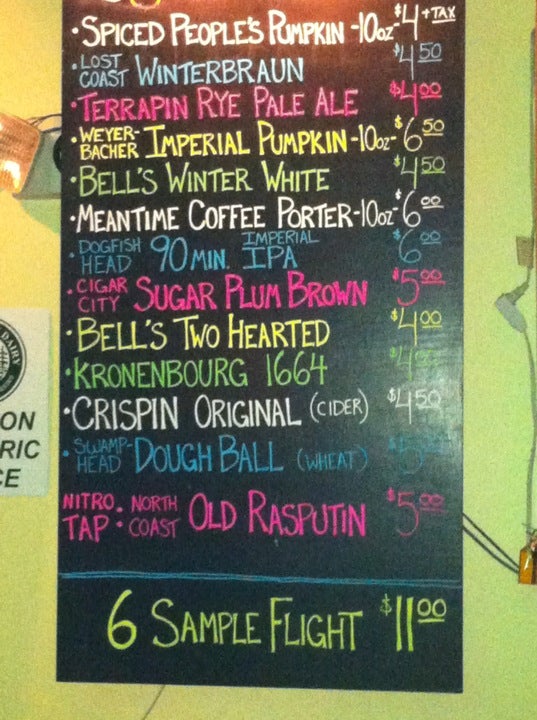 • SPICED PEOPLE'S PUMPKIN -10oz- $4 + TAX
• LOST COAST WINTERBRAUN $4.50
• TERRAPIN RYE PALE ALE $4.00
• WEYER-BACHER IMPERIAL PUMPKIN -10oz- $6.50
• BELL'S WINTER WHITE $4.50
• MEANTIME COFFEE PORTER -10oz- $6.00
• DOGFISH HEAD 90 MIN. IMPERIAL IPA $6.00
• CIGAR CITY SUGAR PLUM BROWN $5.00
• BELL'S TWO HEARTED $4.00
• KRONENBOURG 1664
• CRISPIN ORIGINAL (CIDER) $4.50
• SWAMP-HEAD DOUGH BALL (WHEAT)
NITRO TAP: NORTH COAST OLD RASPUTIN $5.00
6 SAMPLE FLIGHT $11.00
DAIRY
ON
RIC
CE